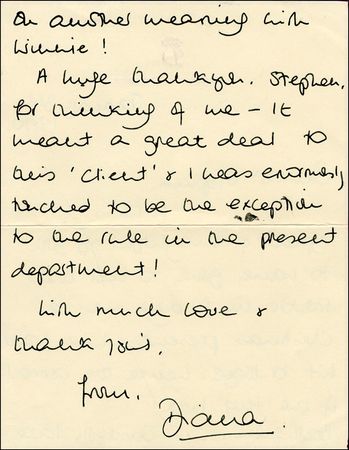 on another meaning with
Winnie!
A huge thankyou, Stephen,
for thinking of me - it
meant a great deal to
this 'client' & I was enormously
touched to be the exception
to the rule in the present
department!
With much love &
thank you's,
from,
Diana.